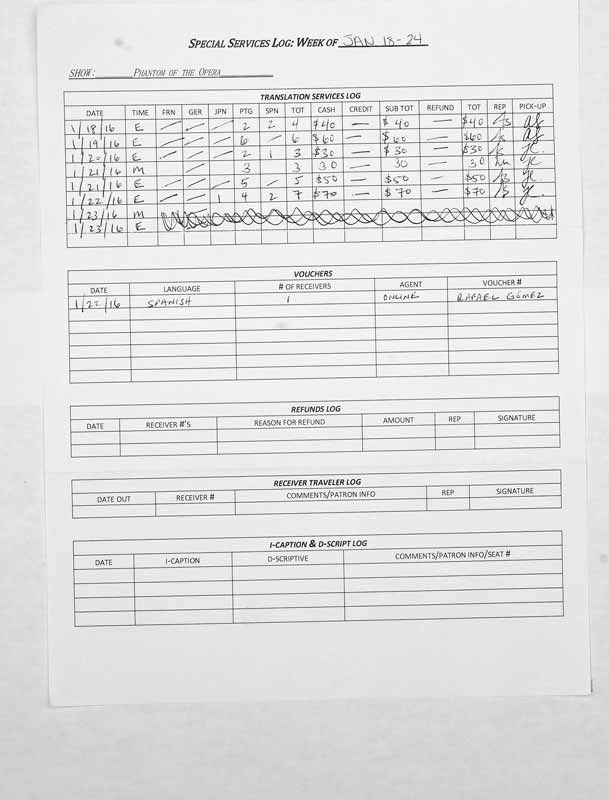 SPECIAL SERVICES LOG: WEEK OF JAN 18-24
SHOW: PHANTOM OF THE OPERA
TRANSLATION SERVICES LOG
DATE TIME FRN GER JPN PTG SPN TOT CASH CREDIT SUB TOT REFUND TOT REP PICK-UP
1/18/16 E — — — 2 2 4 $40 — $40 — $40
1/19/16 E — — — 6 — 6 $60 — $60 — $60
1/20/16 E — — — 2 1 3 $30 — $30 — $30
1/21/16 M 3 3 30 — 30 30
1/21/16 E — — — 5 — 5 $50 — $50 — $50
1/22/16 E — — 1 4 2 7 $70 — $70 — $70
1/23/16 M
1/23/16 E
VOUCHERS
DATE LANGUAGE # OF RECEIVERS AGENT VOUCHER #
1/22/16 SPANISH 1 ONLINE RAFAEL GÓMEZ
REFUNDS LOG
DATE RECEIVER #'S REASON FOR REFUND AMOUNT REP SIGNATURE
RECEIVER TRAVELER LOG
DATE OUT RECEIVER # COMMENTS/PATRON INFO REP SIGNATURE
I-CAPTION & D-SCRIPT LOG
DATE I-CAPTION D-SCRIPTIVE COMMENTS/PATRON INFO/SEAT #